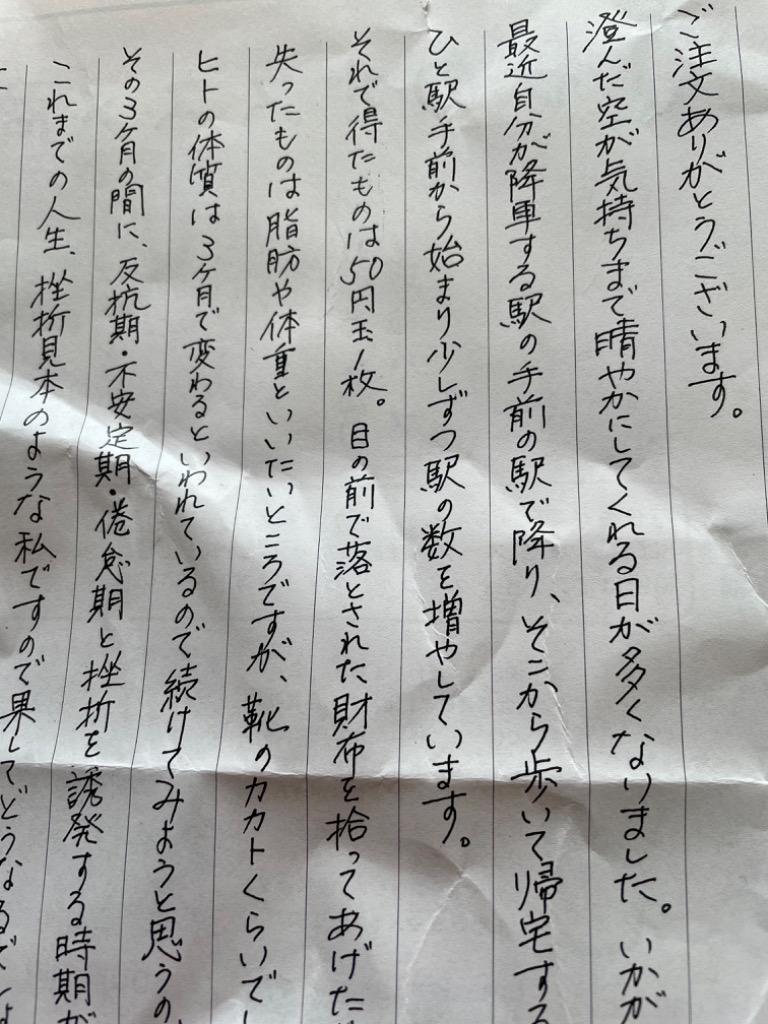 ご注文ありがとうございます。
澄んだ空が気持ちまで晴やかにしてくれる日が多くなりました。いかが
最近自分が降車する駅の手前の駅で降り、そこから歩いて帰宅する
ひと駅手前から始まり少しずつ駅の数を増やしています。
それで得たものは50円玉1枚。目の前で落とされた財布を拾ってあげた
失ったものは脂肪や体重といいたいところですが、靴のカカトくらいで
ヒトの体質は3ヶ月で変わるといわれているので続けてみようと思うの
その3ヶ月の間に、反抗期・不安定期・倦怠期と挫折を誘発する時期が
これまでの人生、挫折見本のような私ですので果してどうなるでしょ